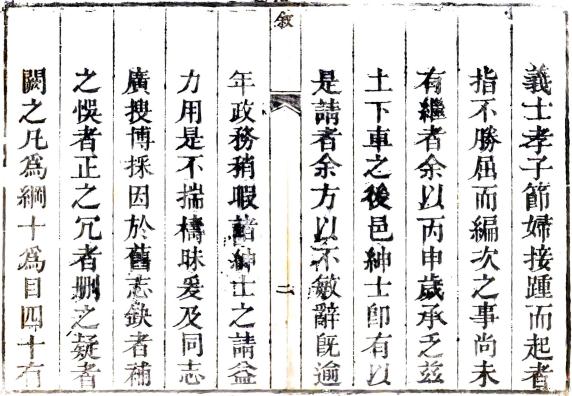 義士孝子節婦接踵而起者
指不勝屈而編次之事尚未
有繼者余以丙申歲承乏茲
土下車之後邑紳士卽有以
是請者余方以不敏辭旣逾
敘
二
年政務稍暇諸紳士之請益
力用是不揣檮昧爰及同志
廣搜博採因於舊志缺者補
之悞者正之冗者刪之疑者
闕之凡為綱十為目四十有